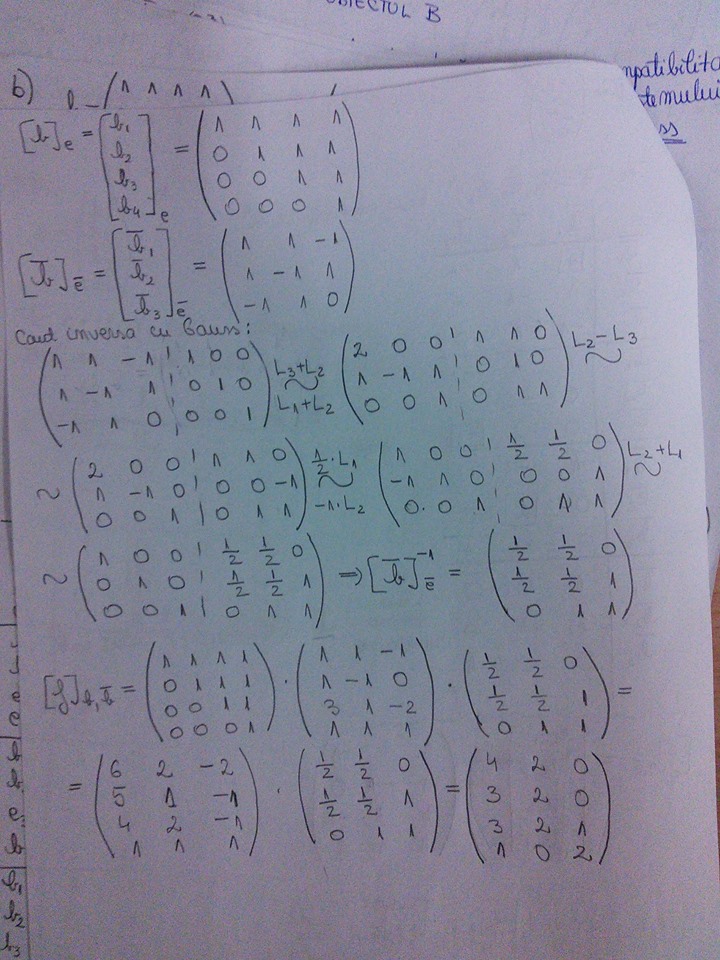 OBIECTUL B
mpatibilita
temului
ss
b) b = (1 1 1 1)
[b]e = [b1 b2 b3 b4]e = (1 1 1 1
0 1 1 1
0 0 1 1
0 0 0 1)
[b̄]ē = [b̄1 b̄2 b̄3]ē = (1 1 -1
1 -1 1
-1 1 0)
Caut inversa cu Gauss:
(1 1 -1 | 1 0 0
1 -1 1 | 0 1 0
-1 1 0 | 0 0 1) L3+L2 ~ L1+L2 (2 0 0 | 1 1 0
1 -1 1 | 0 1 0
0 0 1 | 0 1 1) L2-L3 ~
~ (2 0 0 | 1 1 0
1 -1 0 | 0 0 -1
0 0 1 | 0 1 1) 1/2·L1 ~ -1·L2 (1 0 0 | 1/2 1/2 0
-1 1 0 | 0 0 1
0 0 1 | 0 1 1) L2+L1 ~
~ (1 0 0 | 1/2 1/2 0
0 1 0 | 1/2 1/2 1
0 0 1 | 0 1 1) => [b̄]ē^-1 = (1/2 1/2 0
1/2 1/2 1
0 1 1)
[f]b,b̄ = (1 1 1 1
0 1 1 1
0 0 1 1
0 0 0 1) · (1 1 -1
1 -1 0
3 1 -2
1 1 1) · (1/2 1/2 0
1/2 1/2 1
0 1 1) =
= (6 2 -2
5 1 -1
4 2 -1
1 1 1) · (1/2 1/2 0
1/2 1/2 1
0 1 1) = (4 2 0
3 2 0
3 2 1
1 0 2)
b1
b2
b3